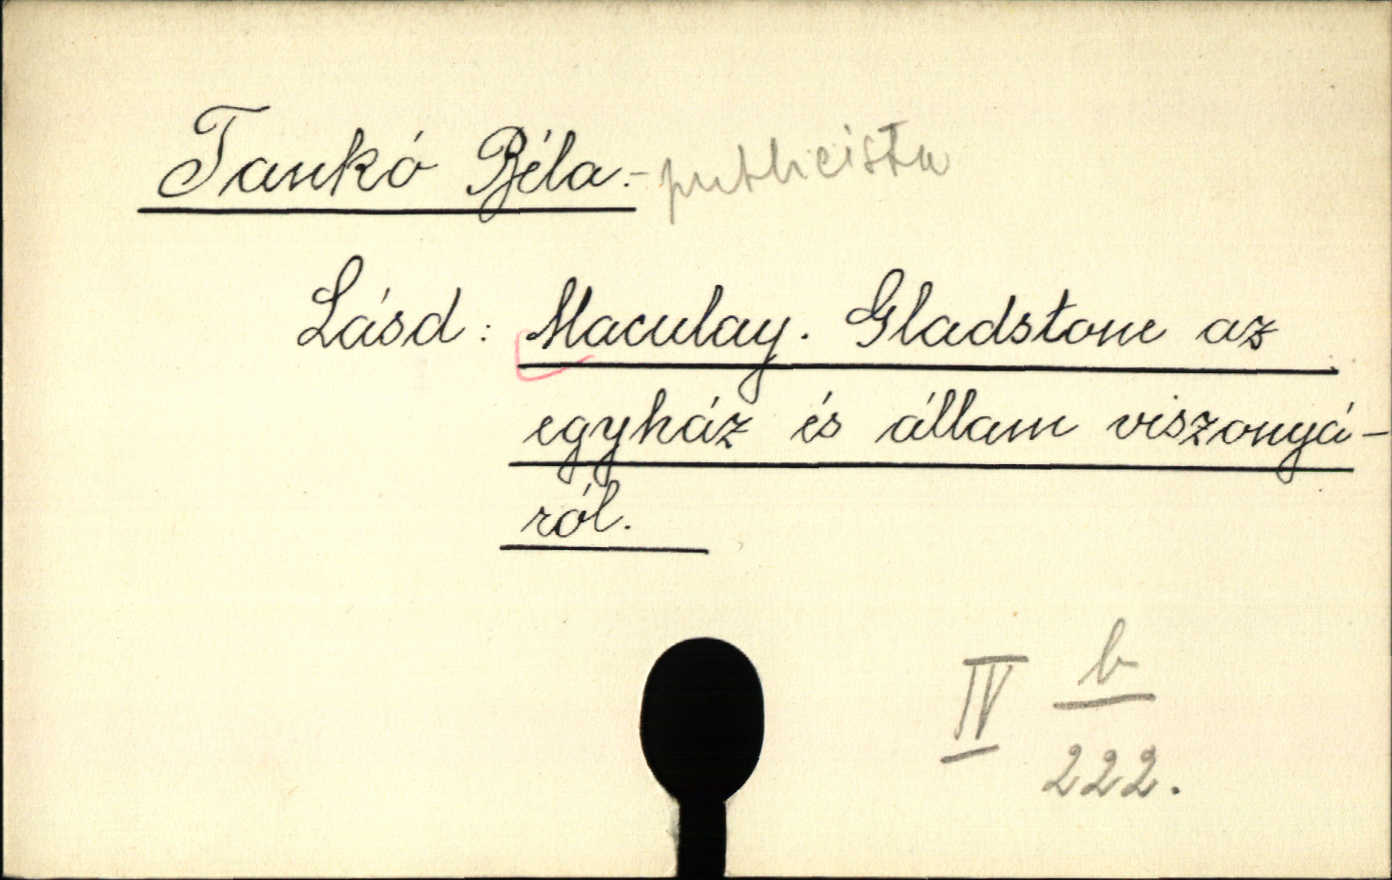 Tankó Béla.- publicista
Lásd: Maculay. Gladstone az
egyház és állam viszonyá-
ról.
IV b
222.